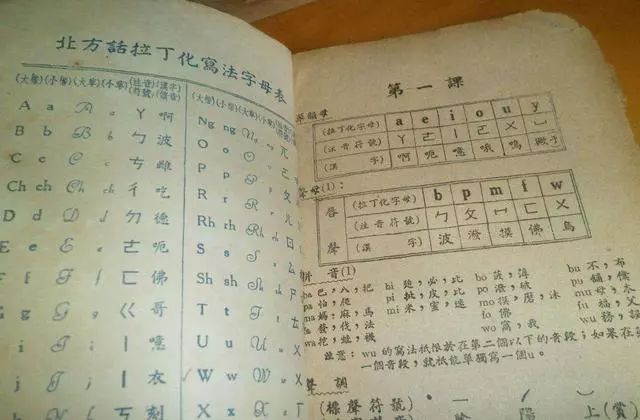 北方話拉丁化寫法字母表
(大學) (小學) (大草) (小草) (注音符號) (漢字讀音)
A a ㄚ 啊
B b ㄅ 波
C c ㄘ 雌
Ch ch ㄔ 吃
D d ㄉ 德
E e ㄜ 呃
F f ㄈ 佛
G g ㄍ 哥
I i 丨 噫
J j 丨 衣
K k ㄎ 刻
(大學) (小學)
Ng ng ㄫ
O o ㄛ
P p ㄆ
R r ㄦ
Rh rh ㄖ
S s ㄙ
Sh sh ㄕ
T t ㄊ
U u ㄨ
W w ㄨ
X x
第一課
單韻母
(拉丁化字母) a e i o u y
(注音符號) ㄚ ㄜ 丨 ㄛ ㄨ ㄩ
(漢 字) 啊 呃 噫 哦 嗚
聲母(1):
唇聲
(拉丁化字母) b p m f w
(注音符號) ㄅ ㄆ ㄇ ㄈ ㄨ
(漢 字) 波 潑 摸 佛 烏
拼音(1)
ba 巴,八,把 bi 逼,必,比 bo 菠,薄 bu 不,布
pa 怕,爬 pi 批,皮,匹 po 潑,破 pu 鋪,
ma 媽,麻,馬 mi 米,蜜,迷 mo 摸,磨,沫 mu 母,木
fa 發,伐,法 fo 佛 fu 福,父
wa 挖,蛙,襪 wo 窩,我 wu 務,
注意:wu的寫法祇限於在第二個以下的音段;如果在第
一個音段,就祇能單獨寫一個u。
聲調
(標聲符號) 陰 陽 上(賞)